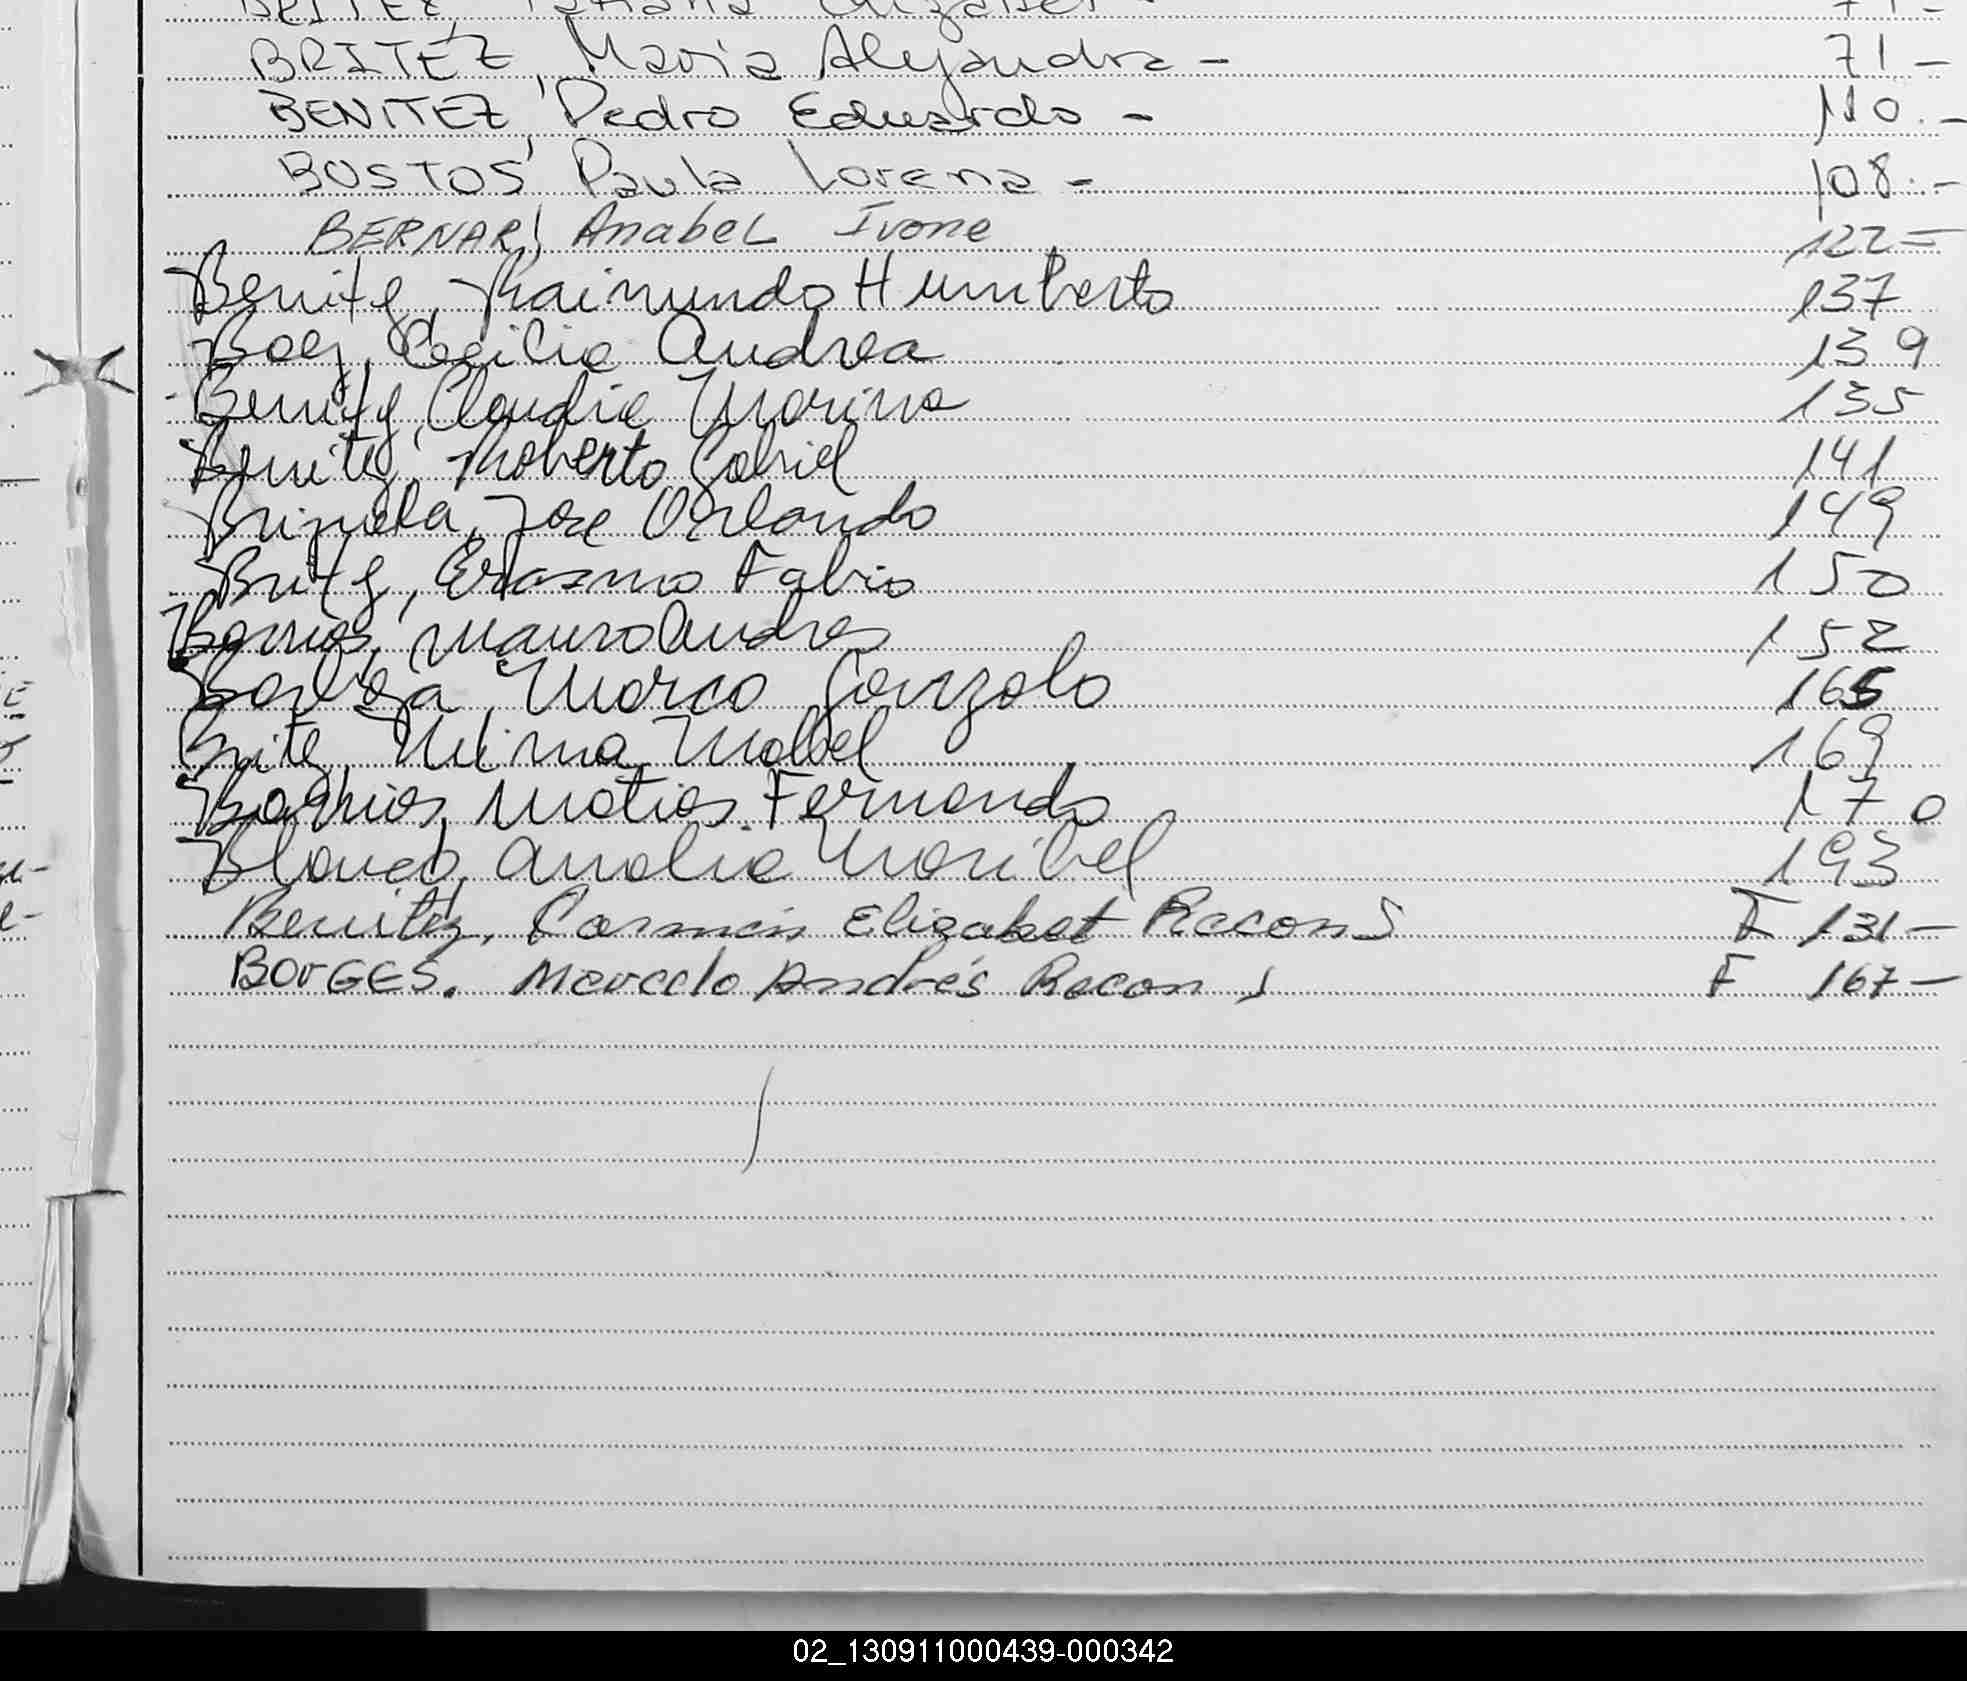 BRITEZ, Tatiana Elizabet - 71 -
BRITEZ, Maria Alejandra - 71 -
BENITEZ, Pedro Eduardo - 110. -
BOSTOS, Paula Lorena - 108. -
BERNAR, Anabel Ivone 122 =
Benitez, Raimundo Humberto 137
Boez, Cecilia Andrea 139
Benitez, Claudia Marina 135
Benitez, Roberto Gabriel 141
Brizuela, Jose Orlando 149
Britez, Erasmo Fabio 150
Barrios, Mauro Andres 152
Marco Gonzalo 165
Britez, Mirna Mabel 169
Barrios, Matias Fernando 170
Blanco, Analia Maribel 193
Benitez, Carmen Elizabet Recons F 131 -
BORGES. Marcelo Andrés Recons F 167 -
02_130911000439-000342